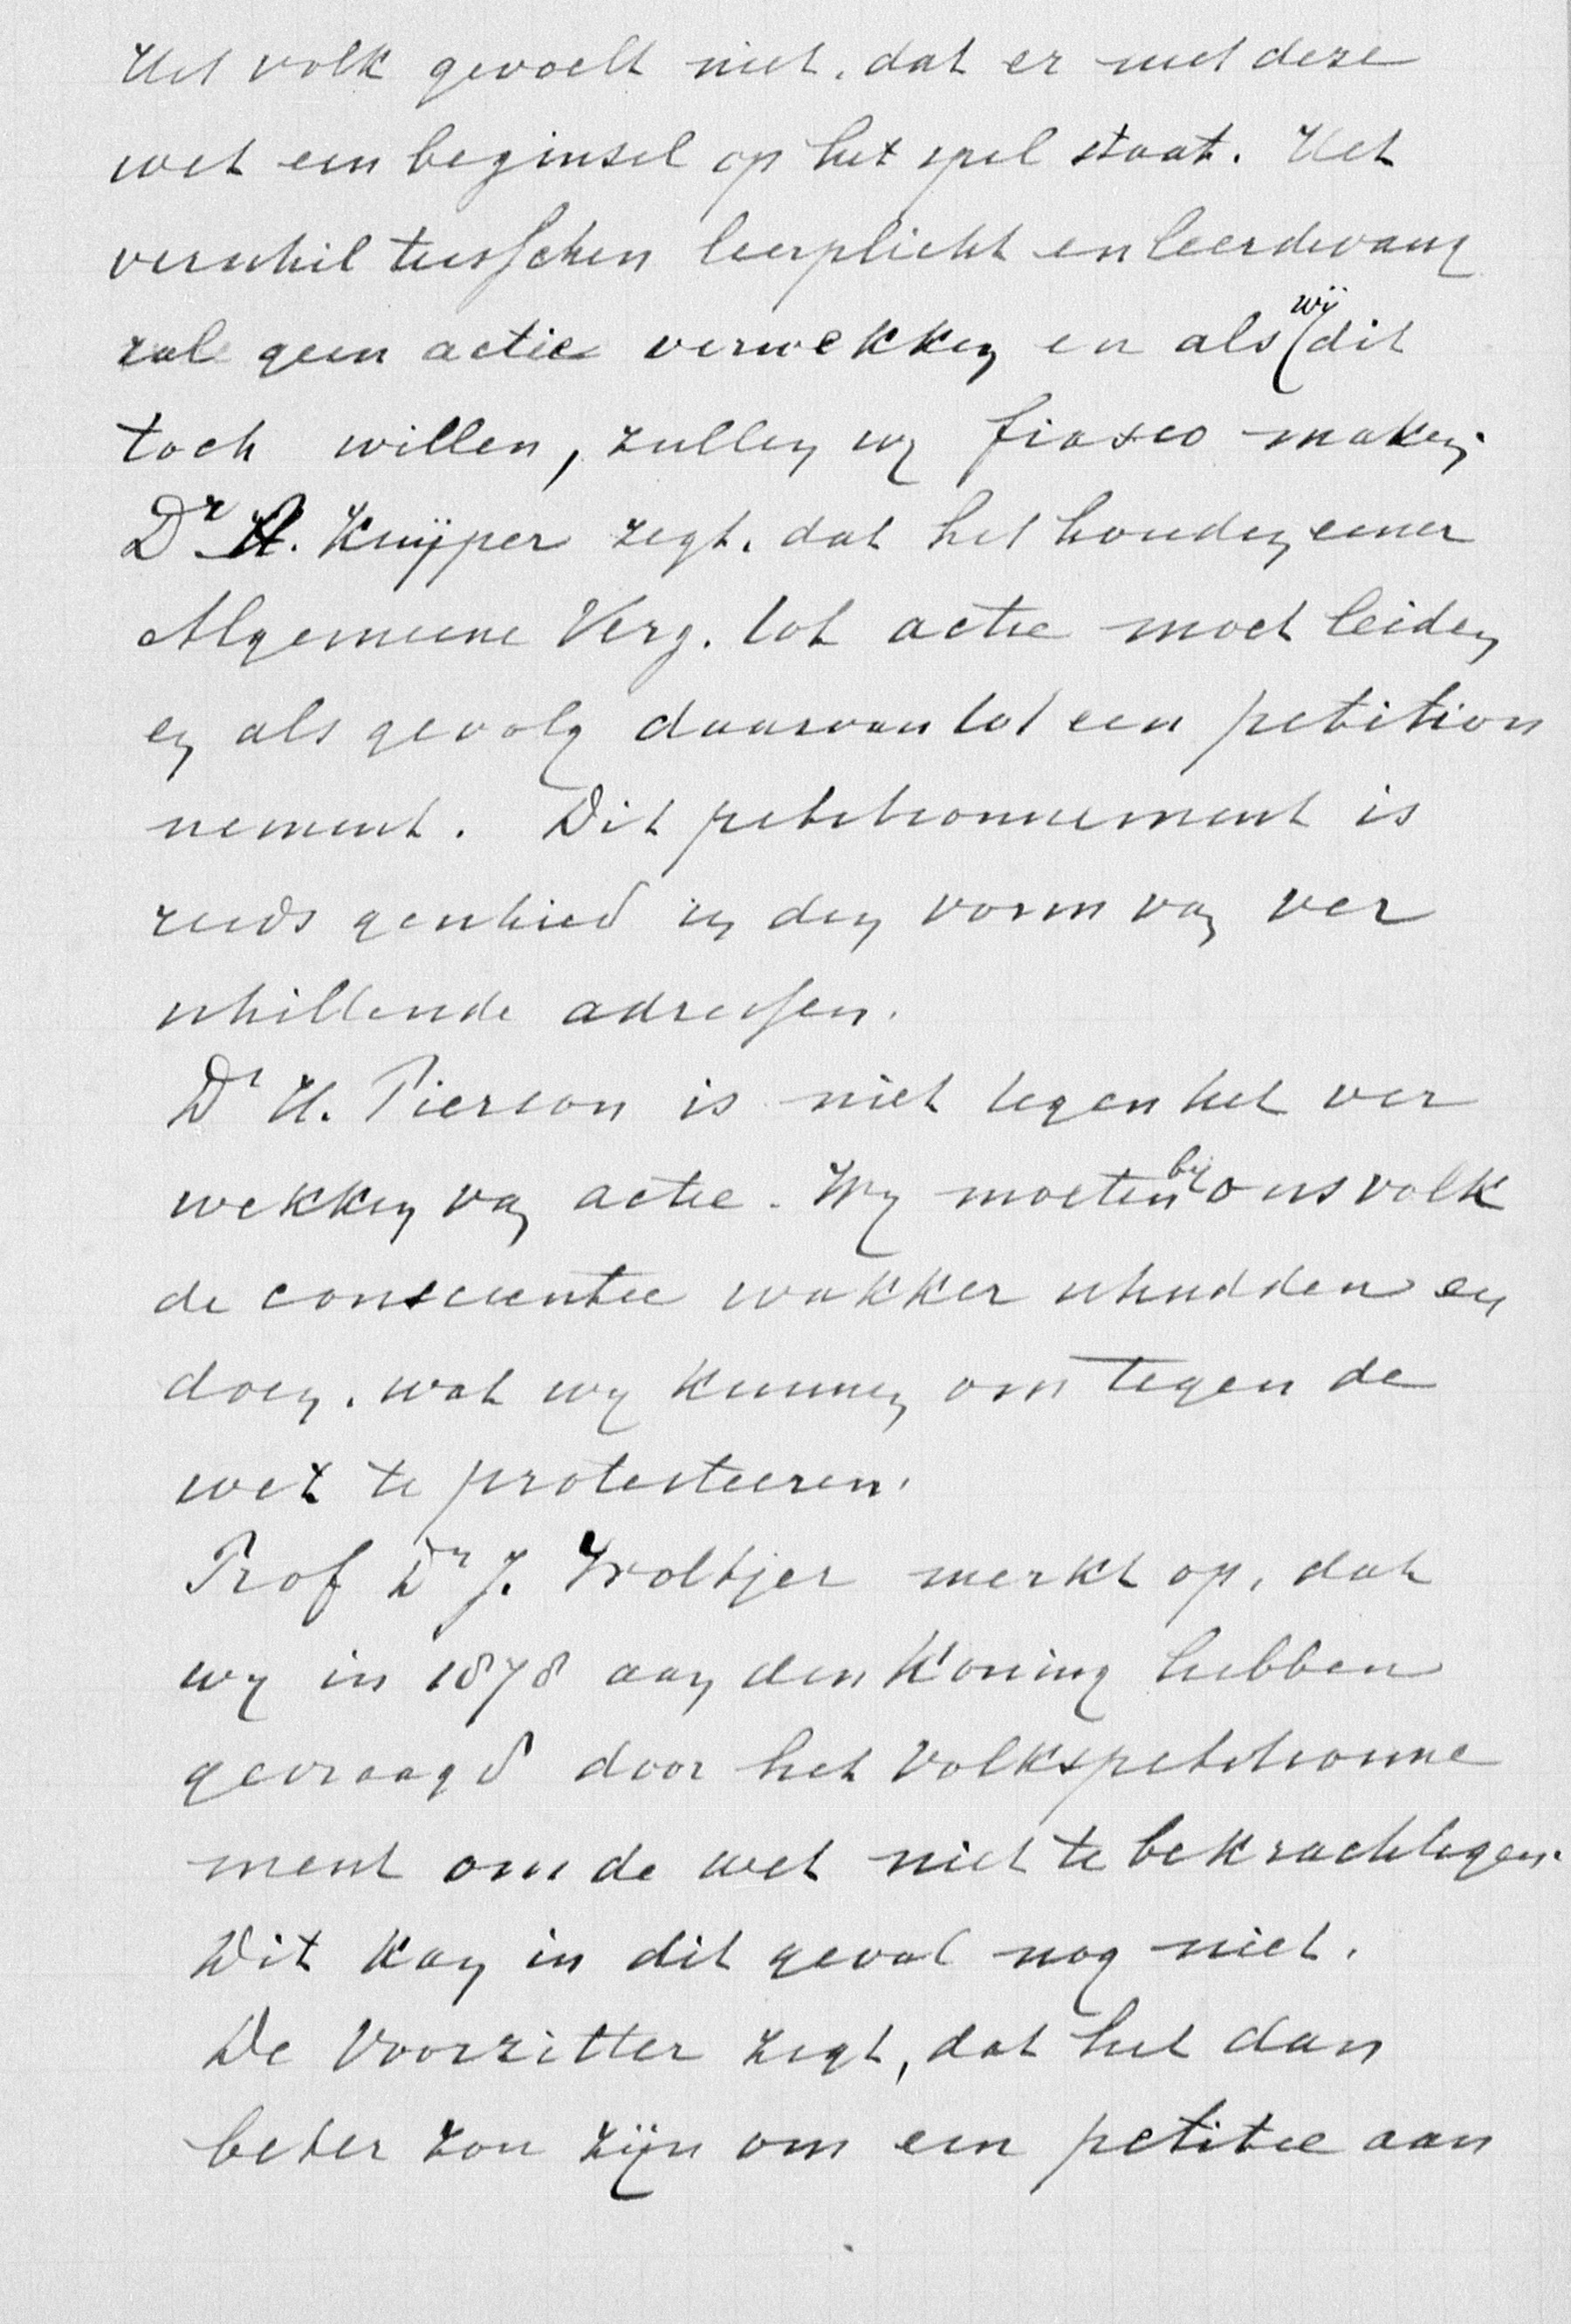 Het volk gevoelt niet, dat er met deze
wet een beginsel op het spel staat. Het
verschil tusschen leerplicht en leerdwang
zal geen actie verwekken en als wij dit
toch willen, zullen wy fiasco maken.
Dr A. Kuijper zegt, dat het houden eener
Algemeene Verg. tot actie moet leiden
en als gevolg daarvan tot een petition
nement. Dit petitionnement is
reeds geschied in den vorm van ver
schillende adressen.
Dr H. Pierson is niet tegen het ver
wekken van actie. Wy moeten by ons volk
de conscientie wakker schudden en
doen, wat wy kunnen om tegen de
wet te protesteeren.
Prof Dr J. Woltjer merkt op, dat
wy in 1878 aan den Koning hebben
gevraagd door het Volkspetitionne
ment om de wet niet te bekrachtigen.
Dit kan in dit geval nog niet.
De Voorzitter zegt, dat het dan
beter zou zijn om een petitie aan